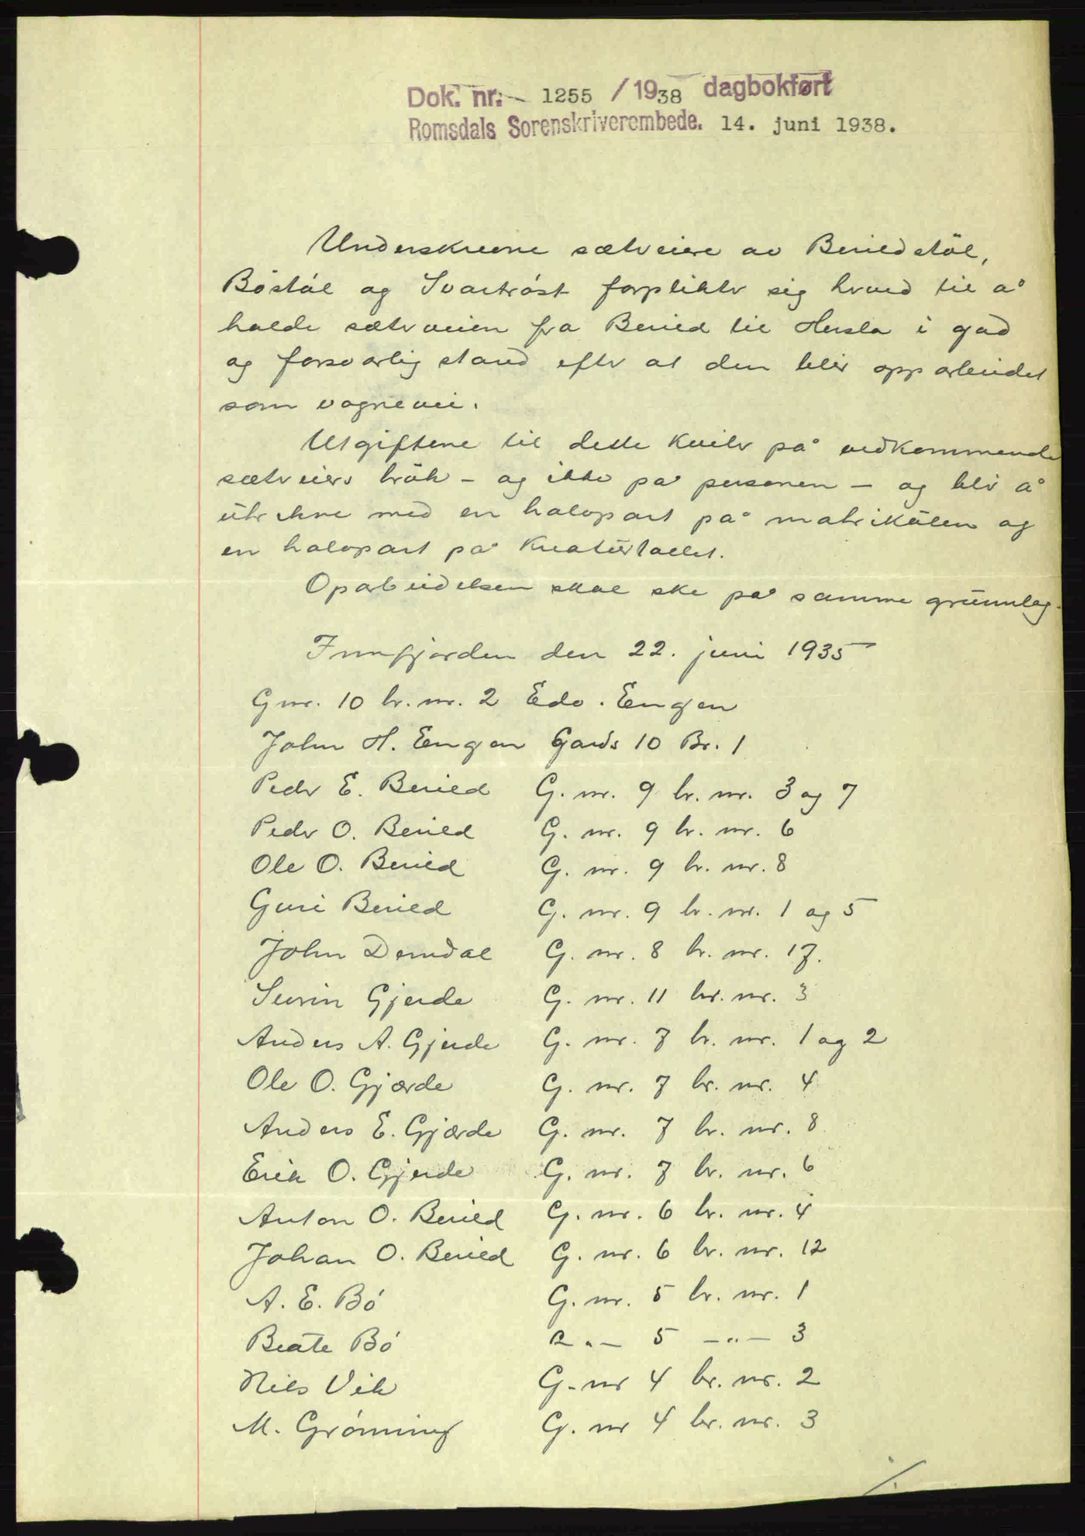 Dok. nr. 1255 /1938 dagbokført
Romsdals Sorenskriverembede. 14. juni 1938.
Underskrevne sætreiere av Berildstøl,
Bøstøl og Svartrøst forplikter sig hermed til å
holde sætreveien fra Berild til Hersla i god
og forsvarlig stand efter at den blir opparbeidet
som vognvei.
Utgiftene til dette kviler på vedkommende
sætreiers bruk - og ikke på personen - og blir å
utrekne med en halvpart på matrikulen og
en halvpart på kreaturtallet.
Oparbeidelsen skal ske på samme grunnlag.
Innfjorden den 22. juni 1935
G nr. 10 br. nr. 2 Edv. Engen
John H. Engen Gards 10 Br. 1
Peder E. Berild G. nr. 9 br. nr. 3 og 7
Peder O. Berild G. nr. 9 br. nr. 6
Ole O. Berild G. nr. 9 br. nr. 8
Guri Berild G. nr. 9 br. nr. 1 og 5
John Demdal G. nr. 8 br. nr. 17.
Syvrin Gjerde G. nr. 11 br. nr. 3
Anders A. Gjerde G. nr. 7 br. nr. 1 og 2
Ole O. Gjærde G. nr. 7 br. nr. 4
Anders E. Gjærde G. nr. 7 br. nr. 8
Erik O. Gjerde G. nr. 7 br. nr. 6
Anton O. Berild G. nr. 6 br. nr. 4
Johan O. Berild G. nr. 6 br. nr. 12
A. E. Bø G. nr. 5 br. nr. 1
Beate Bø - " - 5 - " - 3
Nils Vik G. nr 4 br. nr. 2
M. Grønning G. nr 4 br. nr. 3
./.